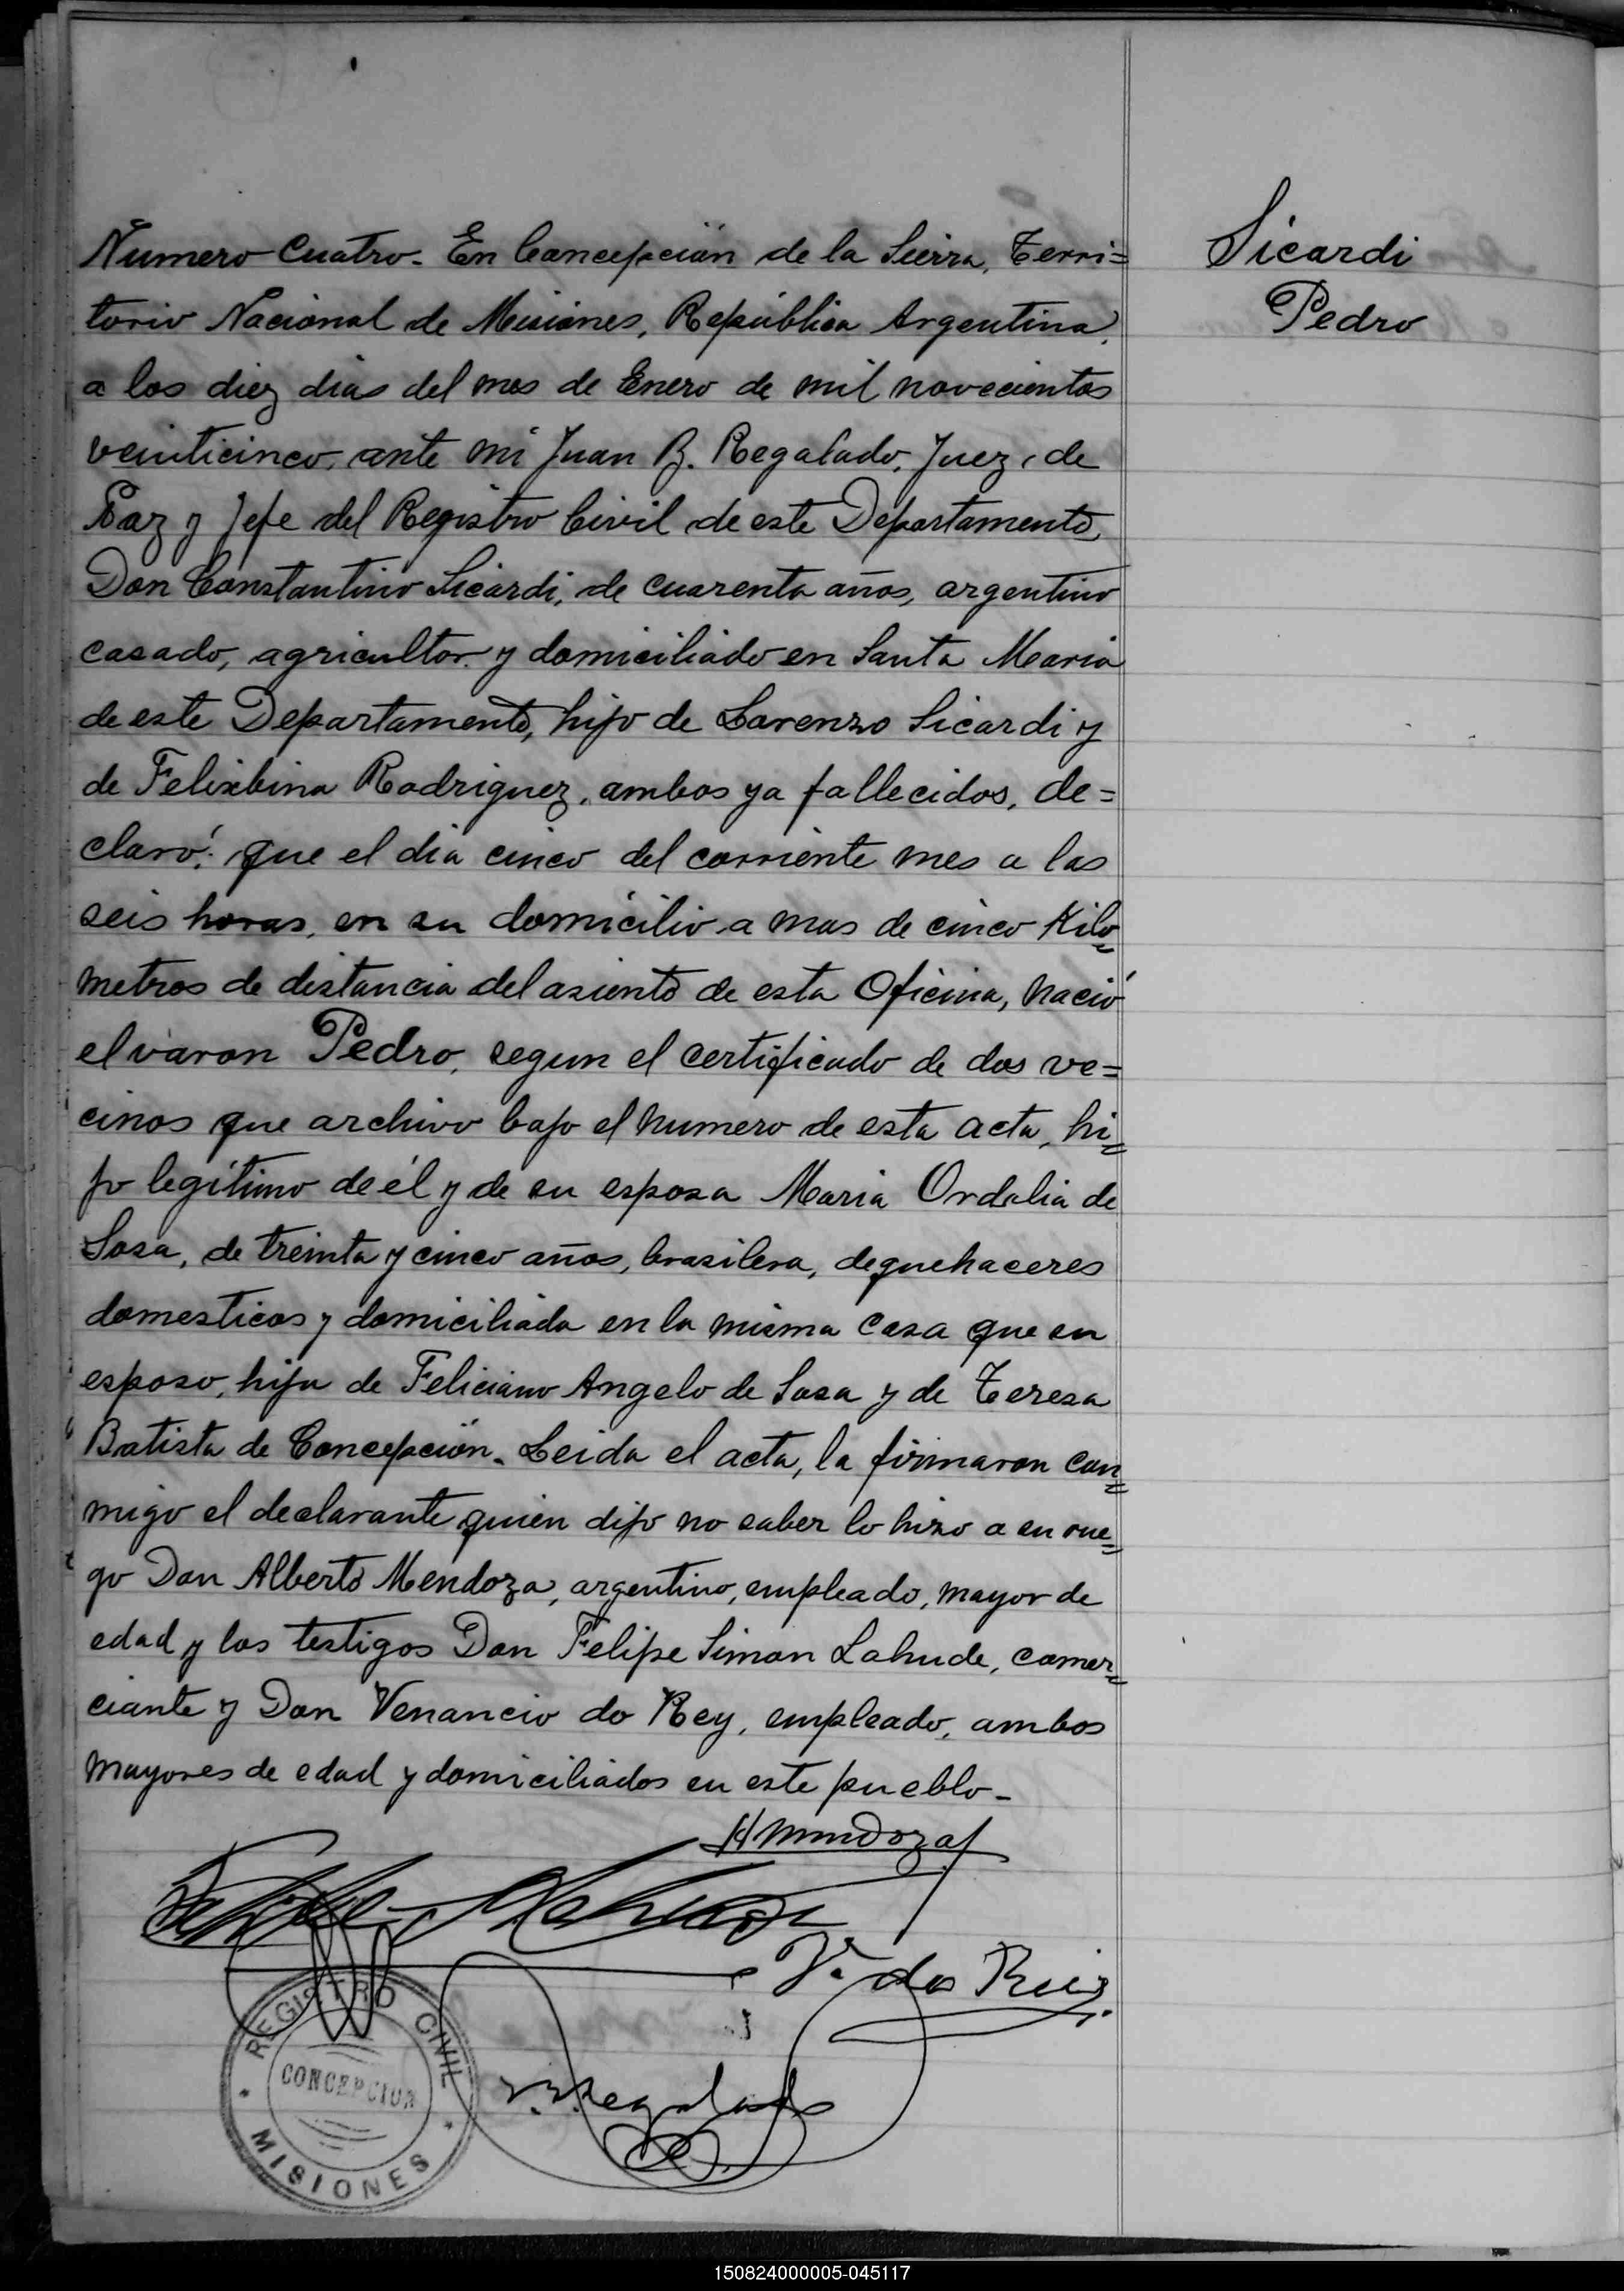 Sicardi
Pedro
Numero Cuatro. En Concepción de la Sierra, Terri=
torio Nacional de Misiones, República Argentina,
a los diez dias del mes de Enero de mil novecientos
veinticinco, ante mi Juan B. Regalado, Juez de
Paz y Jefe del Registro Civil de este Departamento,
Don Constantino Sicardi, de cuarenta años, argentino
casado, agricultor y domiciliado en Santa Maria
de este Departamento, hijo de Lorenzo Sicardi y
de Felisbina Rodriguez, ambos ya fallecidos, de=
claró: que el dia cinco del corriente mes a las
seis horas, en su domicilio a mas de cinco Kilo=
metros de distancia del asiento de esta Oficina, nació
el varon Pedro, segun el certificado de dos ve=
cinos que archivo bajo el numero de esta acta, hi=
jo legítimo de él y de su esposa Maria Ordalia de
Sosa, de treinta y cinco años, brasilera, de quehaceres
domesticos y domiciliada en la misma casa que su
esposo, hija de Feliciano Angelo de Sosa y de Teresa
Batista de Concepción. Leida el acta, la firmaron con=
migo el declarante quien dijo no saber lo hizo a su rue=
go Don Alberto Mendoza, argentino, empleado, mayor de
edad y los testigos Don Felipe Simon Lahude, comer=
ciante y Don Venancio do Rey, empleado, ambos
mayores de edad y domiciliados en este pueblo.
A Mendoza
V. do Rey
J. B. Regalado
REGISTRO CIVIL
CONCEPCION
MISIONES
150824000005-045117